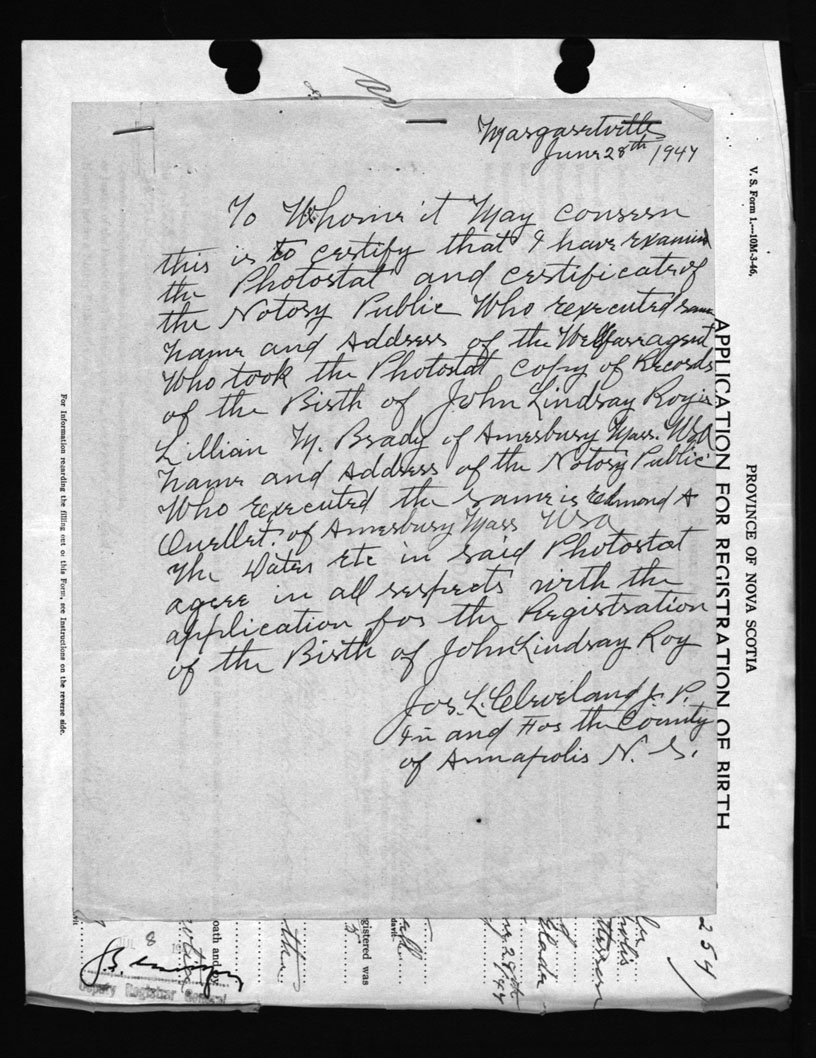 Margaretville
June 28th 1947
To Whome it May Consern
this is to certify that I have examin
the Photostat and certificate of
the Notory Public Who rexecuted same
name and Address of the Welfare agent
Who took the Photostat Copy of Records
of the Birth of John Lindsay Roy is
Lillian M. Brady of Amesbury Mass. USA
name and Address of the Notory Public
Who executed the same is Edmond A
Ouellet. of Amesbury Mass USA
The Dates etc in said Photostat
agree in all respects with the
application for the Registration
of the Birth of John Lindsay Roy
Jos. L. Cleveland J. P.
In and For the County
of Annapolis N. S.
V. S. Form 1.—10M-3-46,
PROVINCE OF NOVA SCOTIA
APPLICATION FOR REGISTRATION OF BIRTH
For Information regarding the filling out of this Form, see Instructions on the reverse side.
254
gistered was
oath and by
JUL 8
Deputy Registrar General